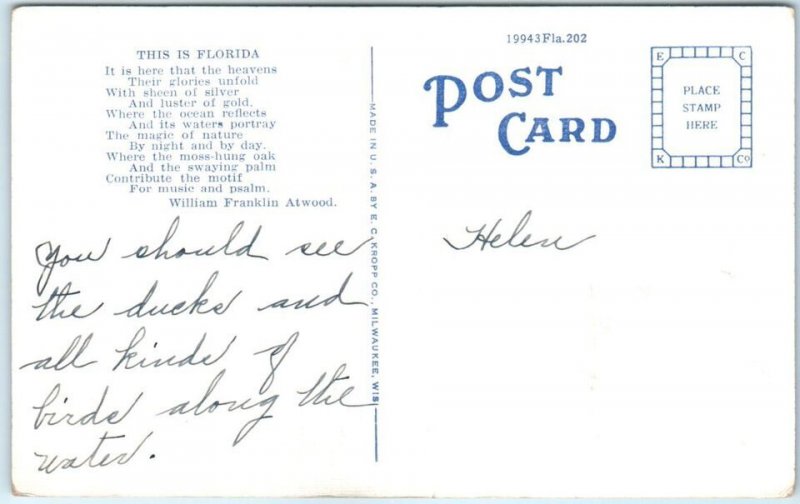 THIS IS FLORIDA
It is here that the heavens
Their glories unfold
With sheen of silver
And luster of gold.
Where the ocean reflects
And its waters portray
The magic of nature
By night and by day.
Where the moss-hung oak
And the swaying palm
Contribute the motif
For music and psalm.
William Franklin Atwood.
You should see
the ducks and
all kinds of
birds along the
water.
MADE IN U. S. A. BY E. C. KROPP CO., MILWAUKEE, WIS.
19943Fla.202
POST
CARD
E C
PLACE
STAMP
HERE
K Co
Helen